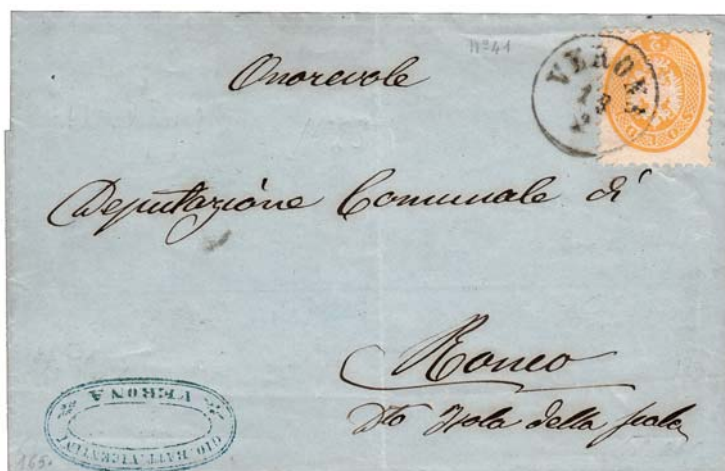 N° 41
VERONA
Onorevole
Deputazione Comunale di
Ronco
Dto Isola della Scala
GIO. BATT. VICENTINI
VERONA
165.